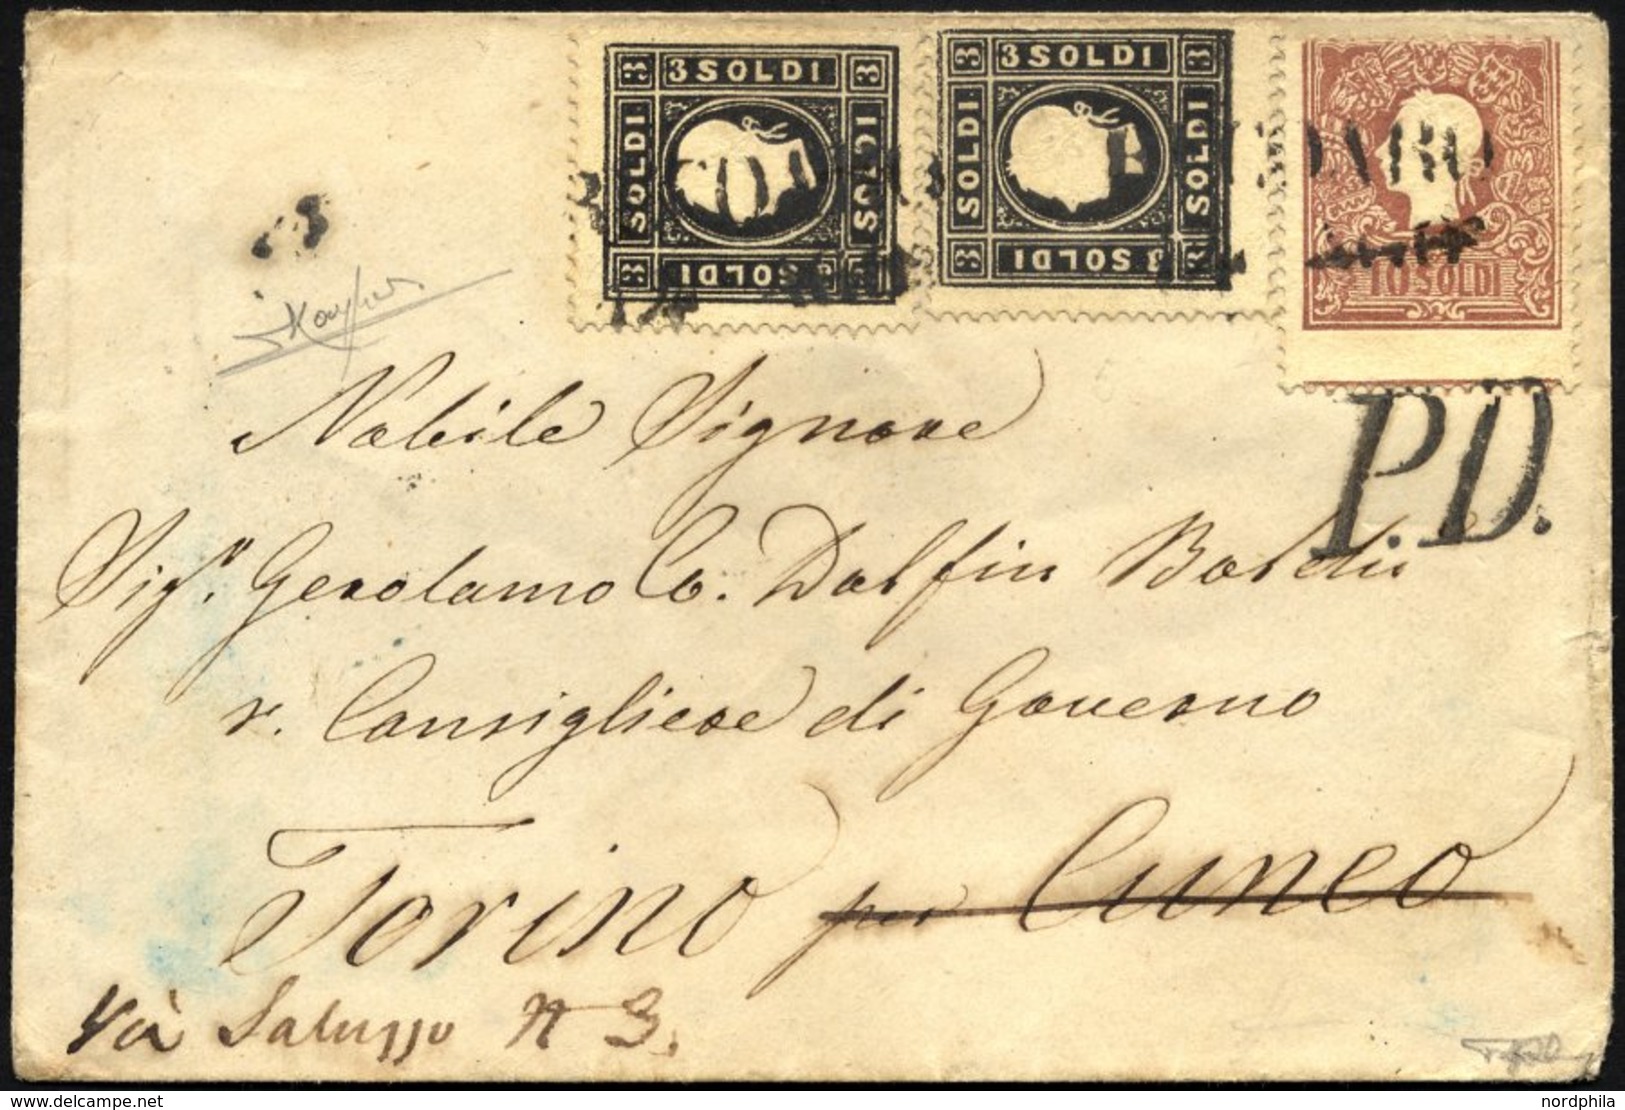 3 SOLDI 3 SOLDI 10 SOLDI
SOLDI SOLDI SOLDI SOLDI
3 SOLDI 3 SOLDI
P.D.
Nobile Signore
Sigr. Gerolamo Co. Dolfin Boldù
r. Consigliere di Governo
Torino per Cuneo
Via Saluzzo N 3.
© nordphila www.delcampe.net